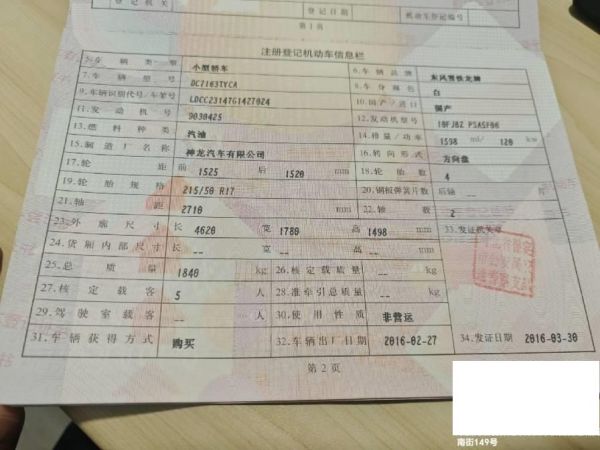 登记机关
登记日期
机动车登记编号
第1页
注册登记机动车信息栏
5.车辆类型 小型轿车 6.车辆品牌 东风雪铁龙牌
7.车辆型号 DC7163TYCA 8.车身颜色 白
9.车辆识别代号/车架号 LDCC23147G1427024 10.国产/进口 国产
11.发动机号 9030425 12.发动机型号 10FJBZ PSA5F06
13.燃料种类 汽油 14.排量/功率 1598 ml/ 120 kw
15.制造厂名称 神龙汽车有限公司 16.转向形式 方向盘
17.轮距 前 1525 后 1520 mm 18.轮胎数 4
19.轮胎规格 215/50 R17 20.钢板弹簧片数 后轴 -- 片
21.轴距 2710 mm 22.轴数 2
23.外廓尺寸 长 4620 宽 1780 高 1498 mm 33.发证机关章
24.货厢内部尺寸 长 -- 宽 -- 高 -- mm
25.总质量 1840 kg 26.核定载质量 -- kg
27.核定载客 5 人 28.准牵引总质量 -- kg
29.驾驶室载客 -- 人 30.使用性质 非营运
31.车辆获得方式 购买 32.车辆出厂日期 2016-02-27 34.发证日期 2016-03-30
第2页
南街149号